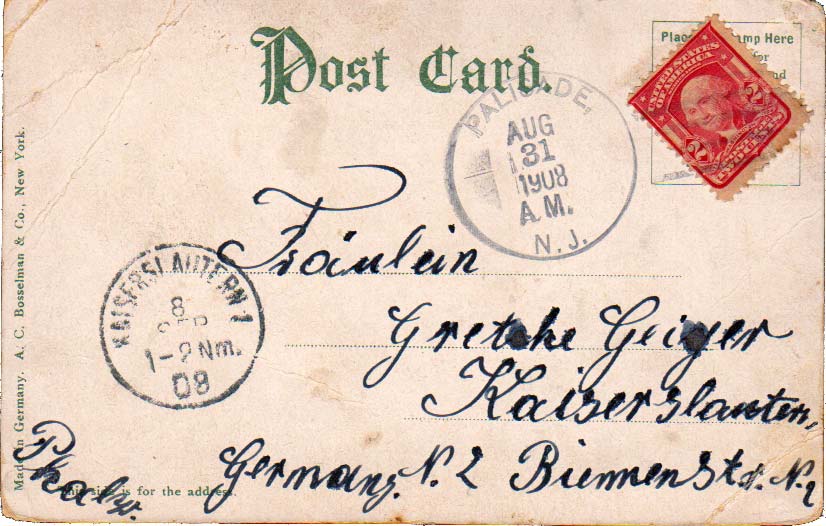 Post Card
Place Stamp Here
for
and
UNITED STATES
OF AMERICA
2 2
TWO CENTS
PALISADE,
AUG
31
1908
A.M.
N.J.
Fräulein
Gretche Geiger
Kaiserslautern,
Germany. N. 2
KAISERSLAUTERN 1
8
SEP
1-2 Nm.
08
Pfalz.
This side is for the address.
Made in Germany. A. C. Bosselman & Co., New York.